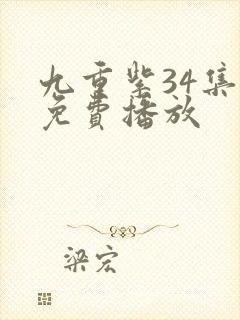 九重紫34集
免費播放
梁宏